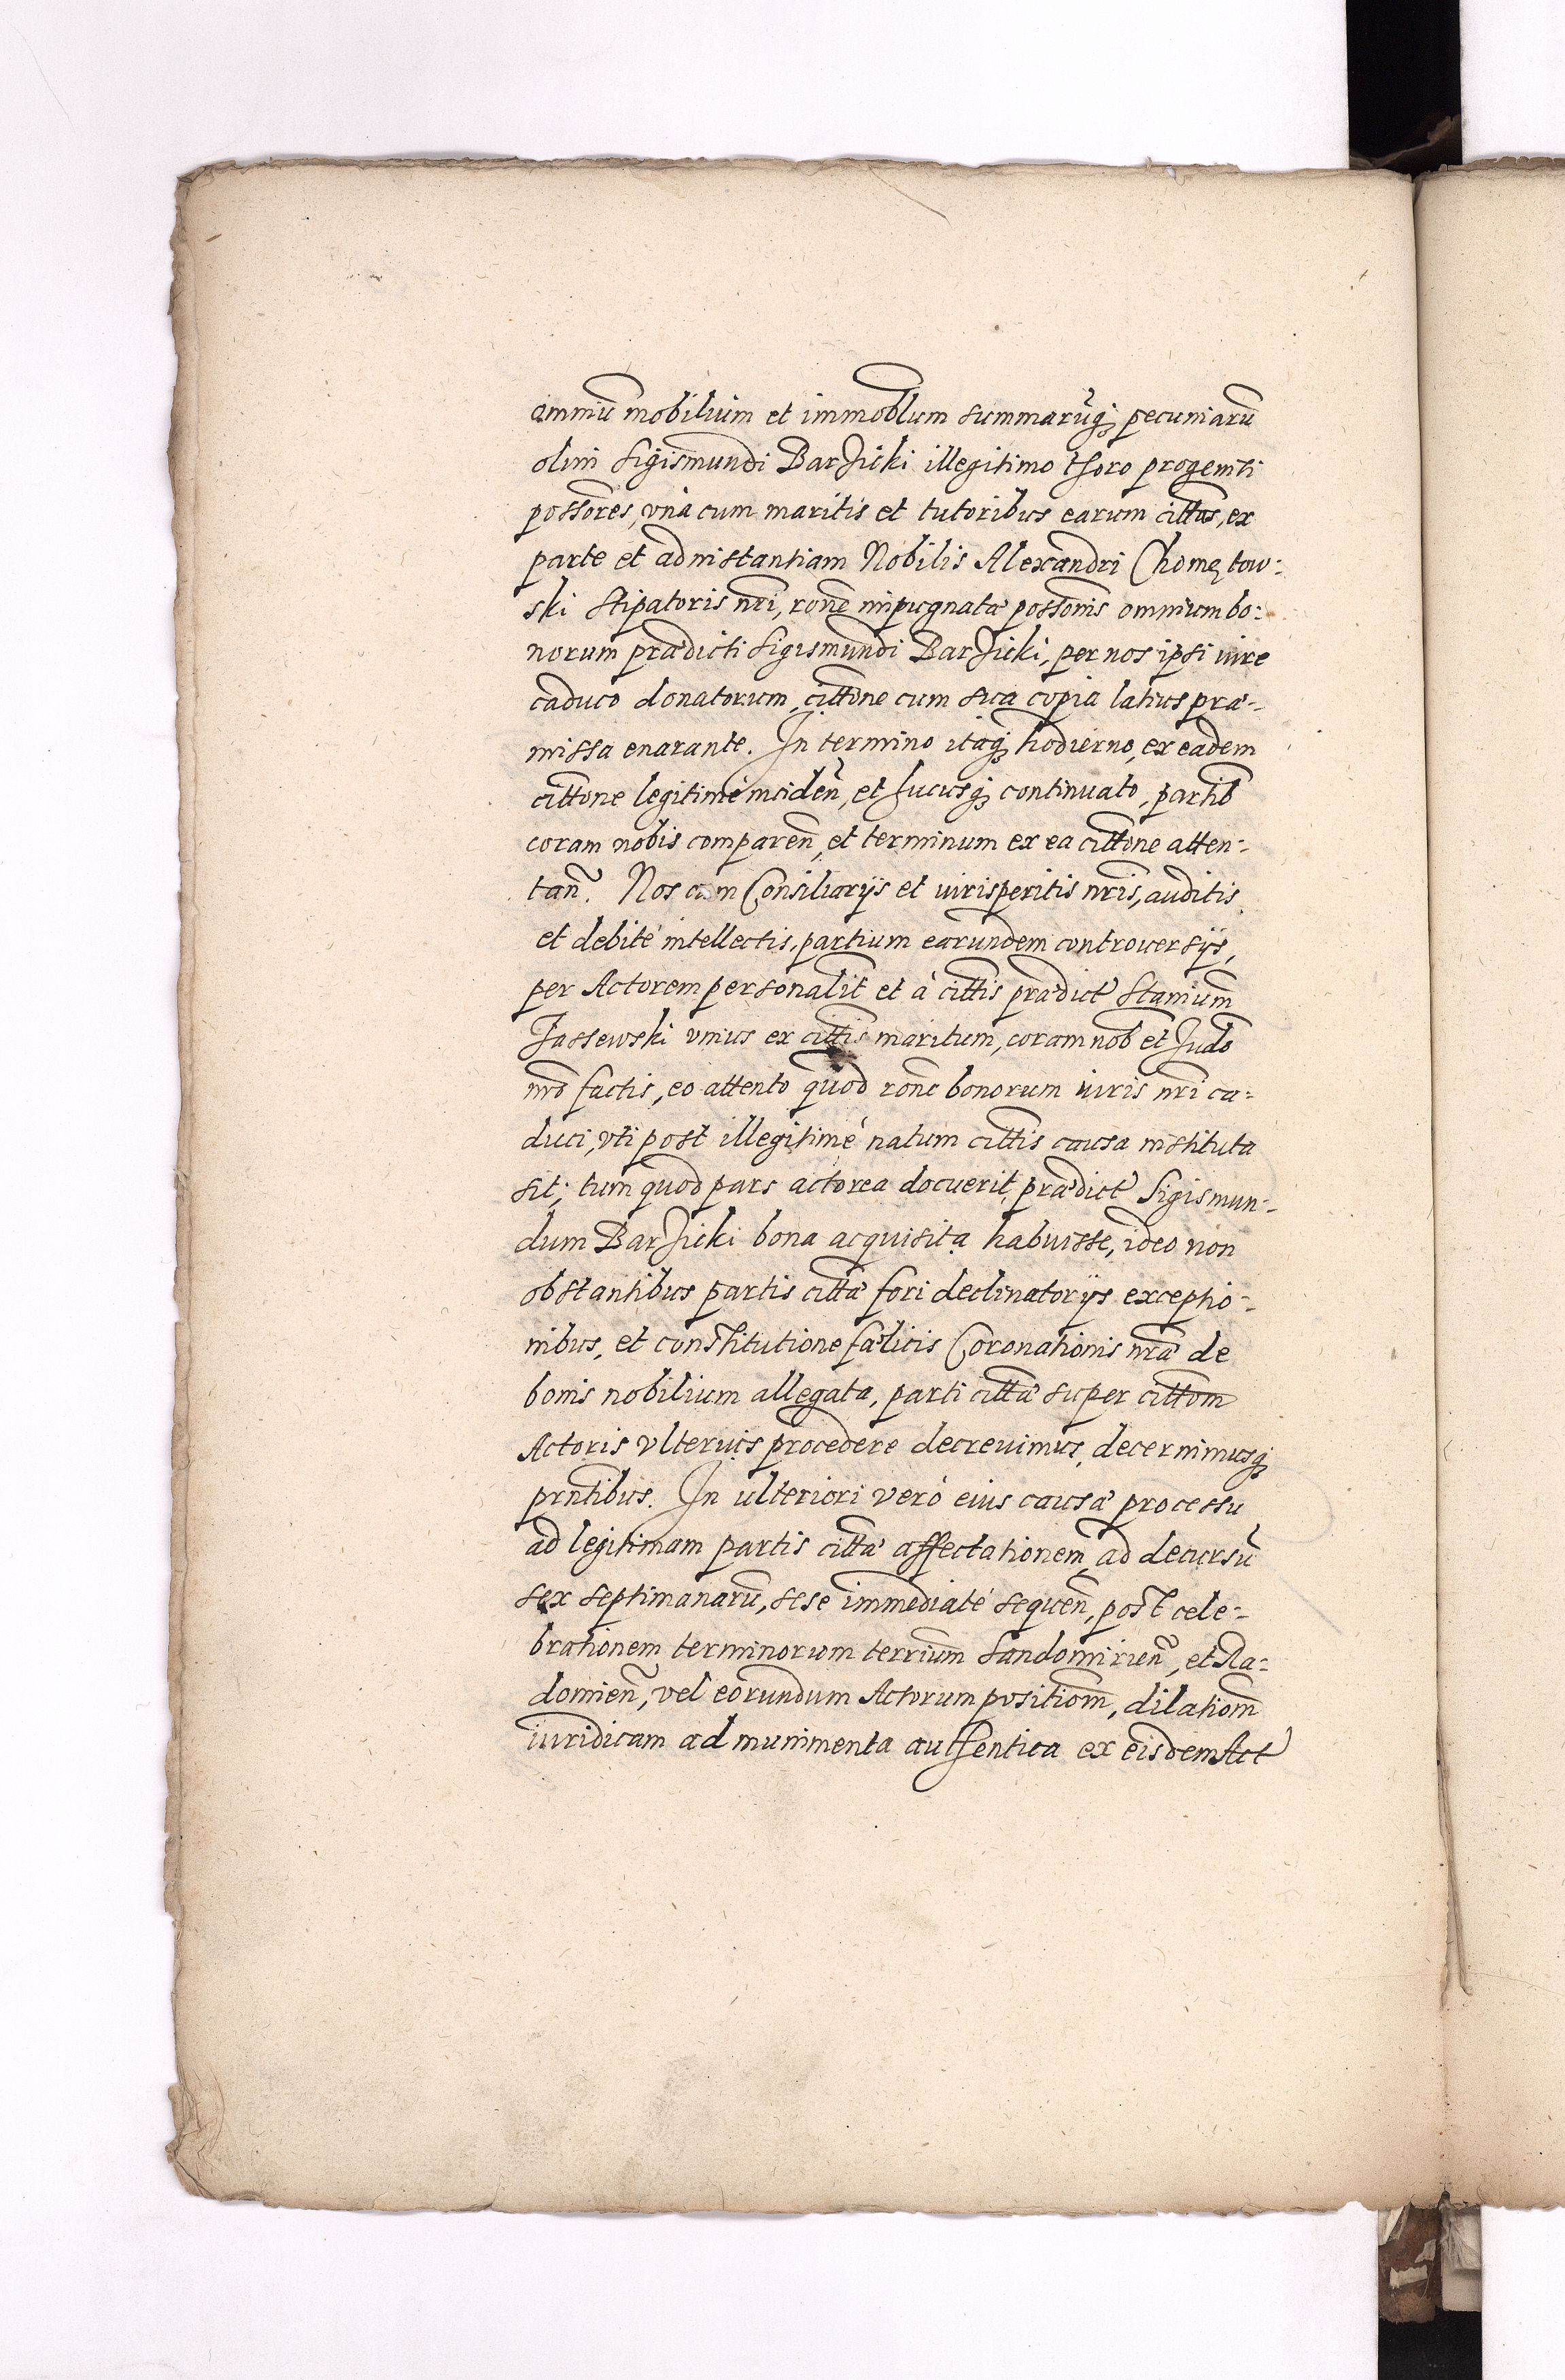 omniū mobilium et immoblum summarūq₃ pecuniarū
olim Sigismundi Barzicki illegitimo thoro progeniti
possores, vnà cum maritis et tutoribus earum cittas, ex
parte et ad instantiam Nobilis Alexandri Chomętow:
ski Stipatoris nri, rone impugnatæ possonis omnium bo:
norum prædicti Sigismundi Barzicki, per nos ipsi iure
caduco donatorum, cittone cum sua copia latius præ-
missa enarante. In termino itaq₃ hodierno, ex eadem
cittone legitimè inciden, et hucusq₃ continuato, partib
coram nobis comparen, et terminum ex ea cittone atten-
tan. Nos cum Consiliarijs et iurisperitis nris, auditis
et debitè intellectis, partium earundem controuersijs,
per Actorem personalit et à cittis prædict Stanium
Jassewski vnius ex cittis maritum, coram nob et Judo
nro factis, eo attento quod rone bonorum iuris nri ca-
duci, vti post illegitimè natum cittis causa instituta
sit; tum quod pars actorea docuerit, prædict Sigismun-
dum Barzicki bona acquisita habuisse, ideo non
obstantibus partis cittæ fori declinatorijs exceptio-
nibus, et constitutione fælicis Coronationis nræ de
bonis nobilium allegata, parti cittæ super cittom
Actoris vlterius procedere decreuimus, decernimusq₃
prntibus. In ulteriori verò eius causæ processu
ad legitimam partis cittæ affectationem, ad decursū
sex septimanarū, sese immediatè sequen, post cele-
brationem terminorum terrium Sandomirien, et Ra-
domien, vel eorundum Actorum positiom, dilatiom
iuridicam ad munimenta authentica ex eisdem Act